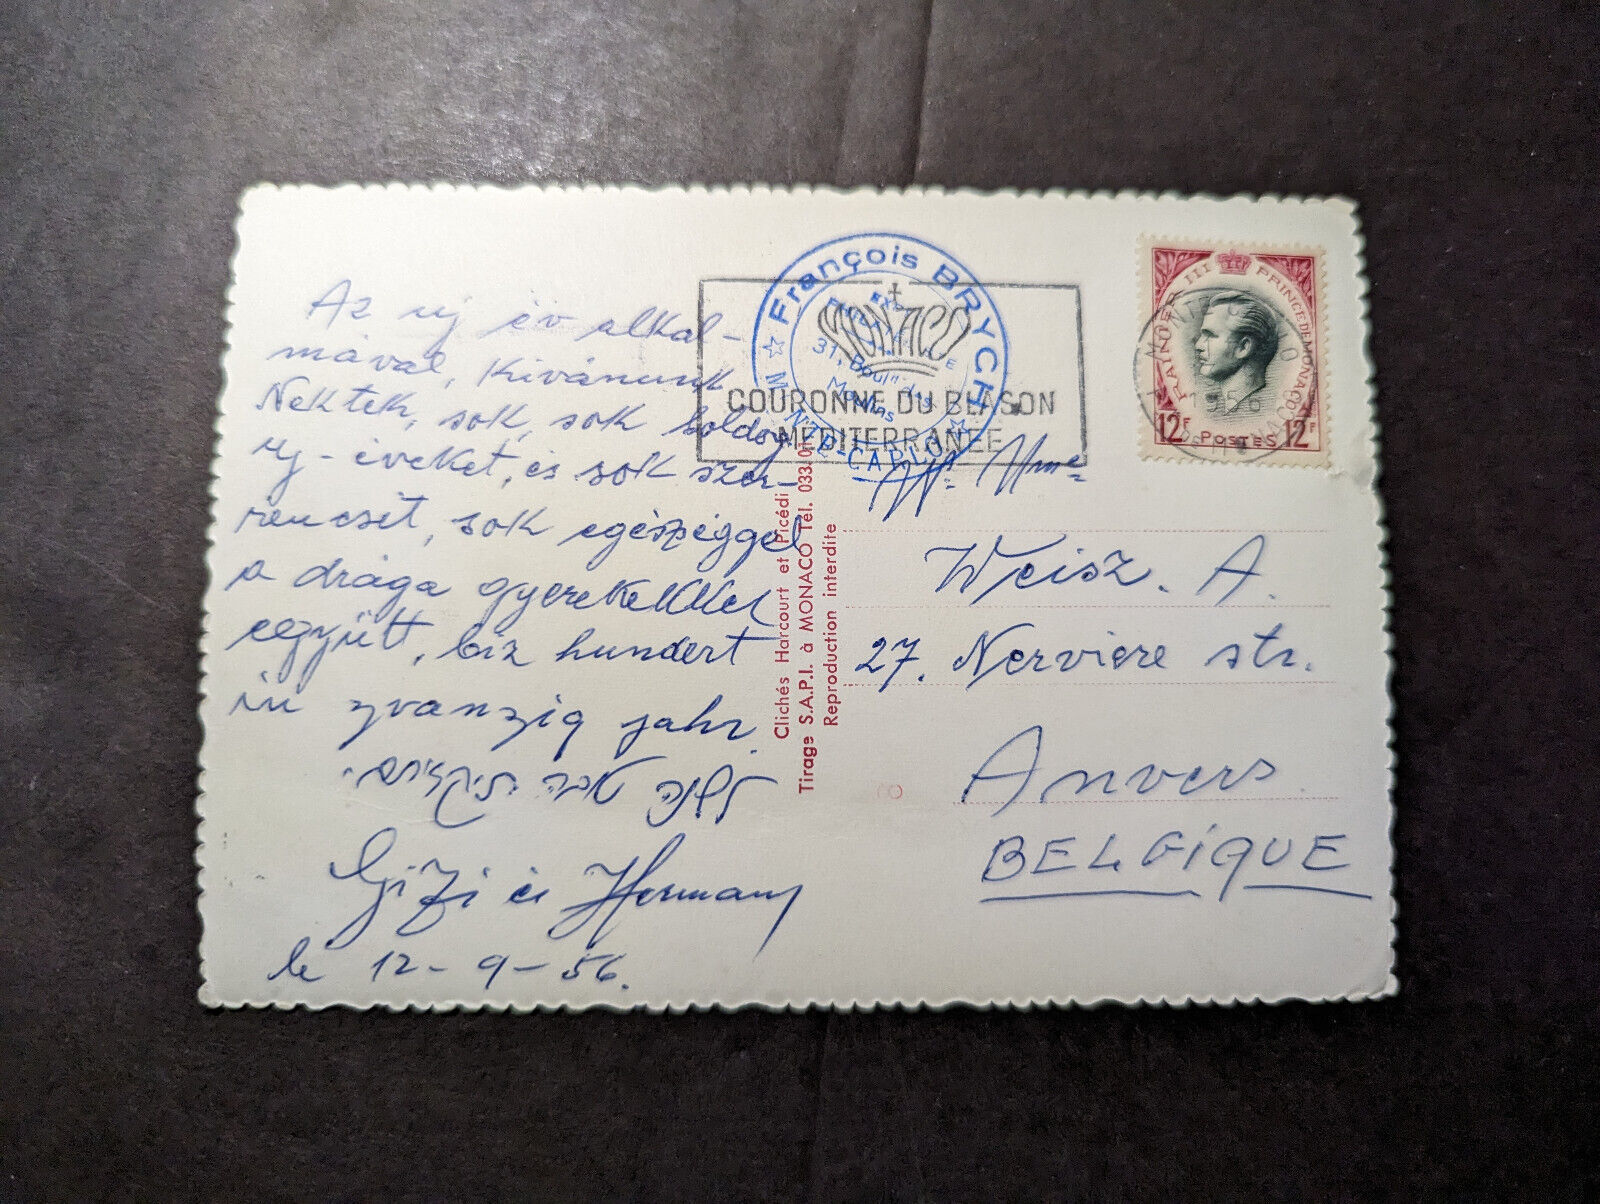 Az uj év alkal-
mával, Kivánunk
Nektek, sok, sok boldog
uj-éveket, és sok szer-
rencsét, sok egészéggel
a drága gyerekekkel
együtt, biz hundert
in zvanzig jahr.
לשנה טובה תיקתבו
Gizi és Hermann
le 12-9-56.
François BRYCH
31, Boul. des
Moulins
MONTE-CARLO
MONACO
COURONNE DU BLASON
MEDITERRANEE
RAYNIER III PRINCE DE MONACO
1956
12F POSTES 12F
Clichés Harcourt et Picédi
Tirage S.A.P.I. à MONACO Tél. 033-01
Reproduction interdite
8
Mr. Mme
Weisz. A.
27. Nerviere str.
Anvers
BELGIQUE